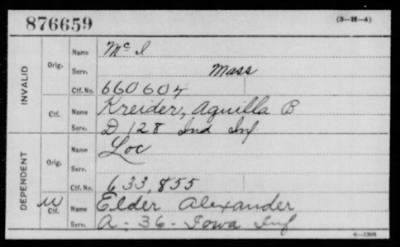 876659
(3-H-A)
INVALID
Orig.
Name Mc I
Serv. Mass
Ctf. No. 660604
Ctf.
Name Kreider, Aquilla B
Serv. D 128 Ind Inf
DEPENDENT
Orig.
Name Loc
Serv.
Ctf. No. 633,855
W Ctf.
Name Elder Alexander
Serv. A-36-Iowa Inf